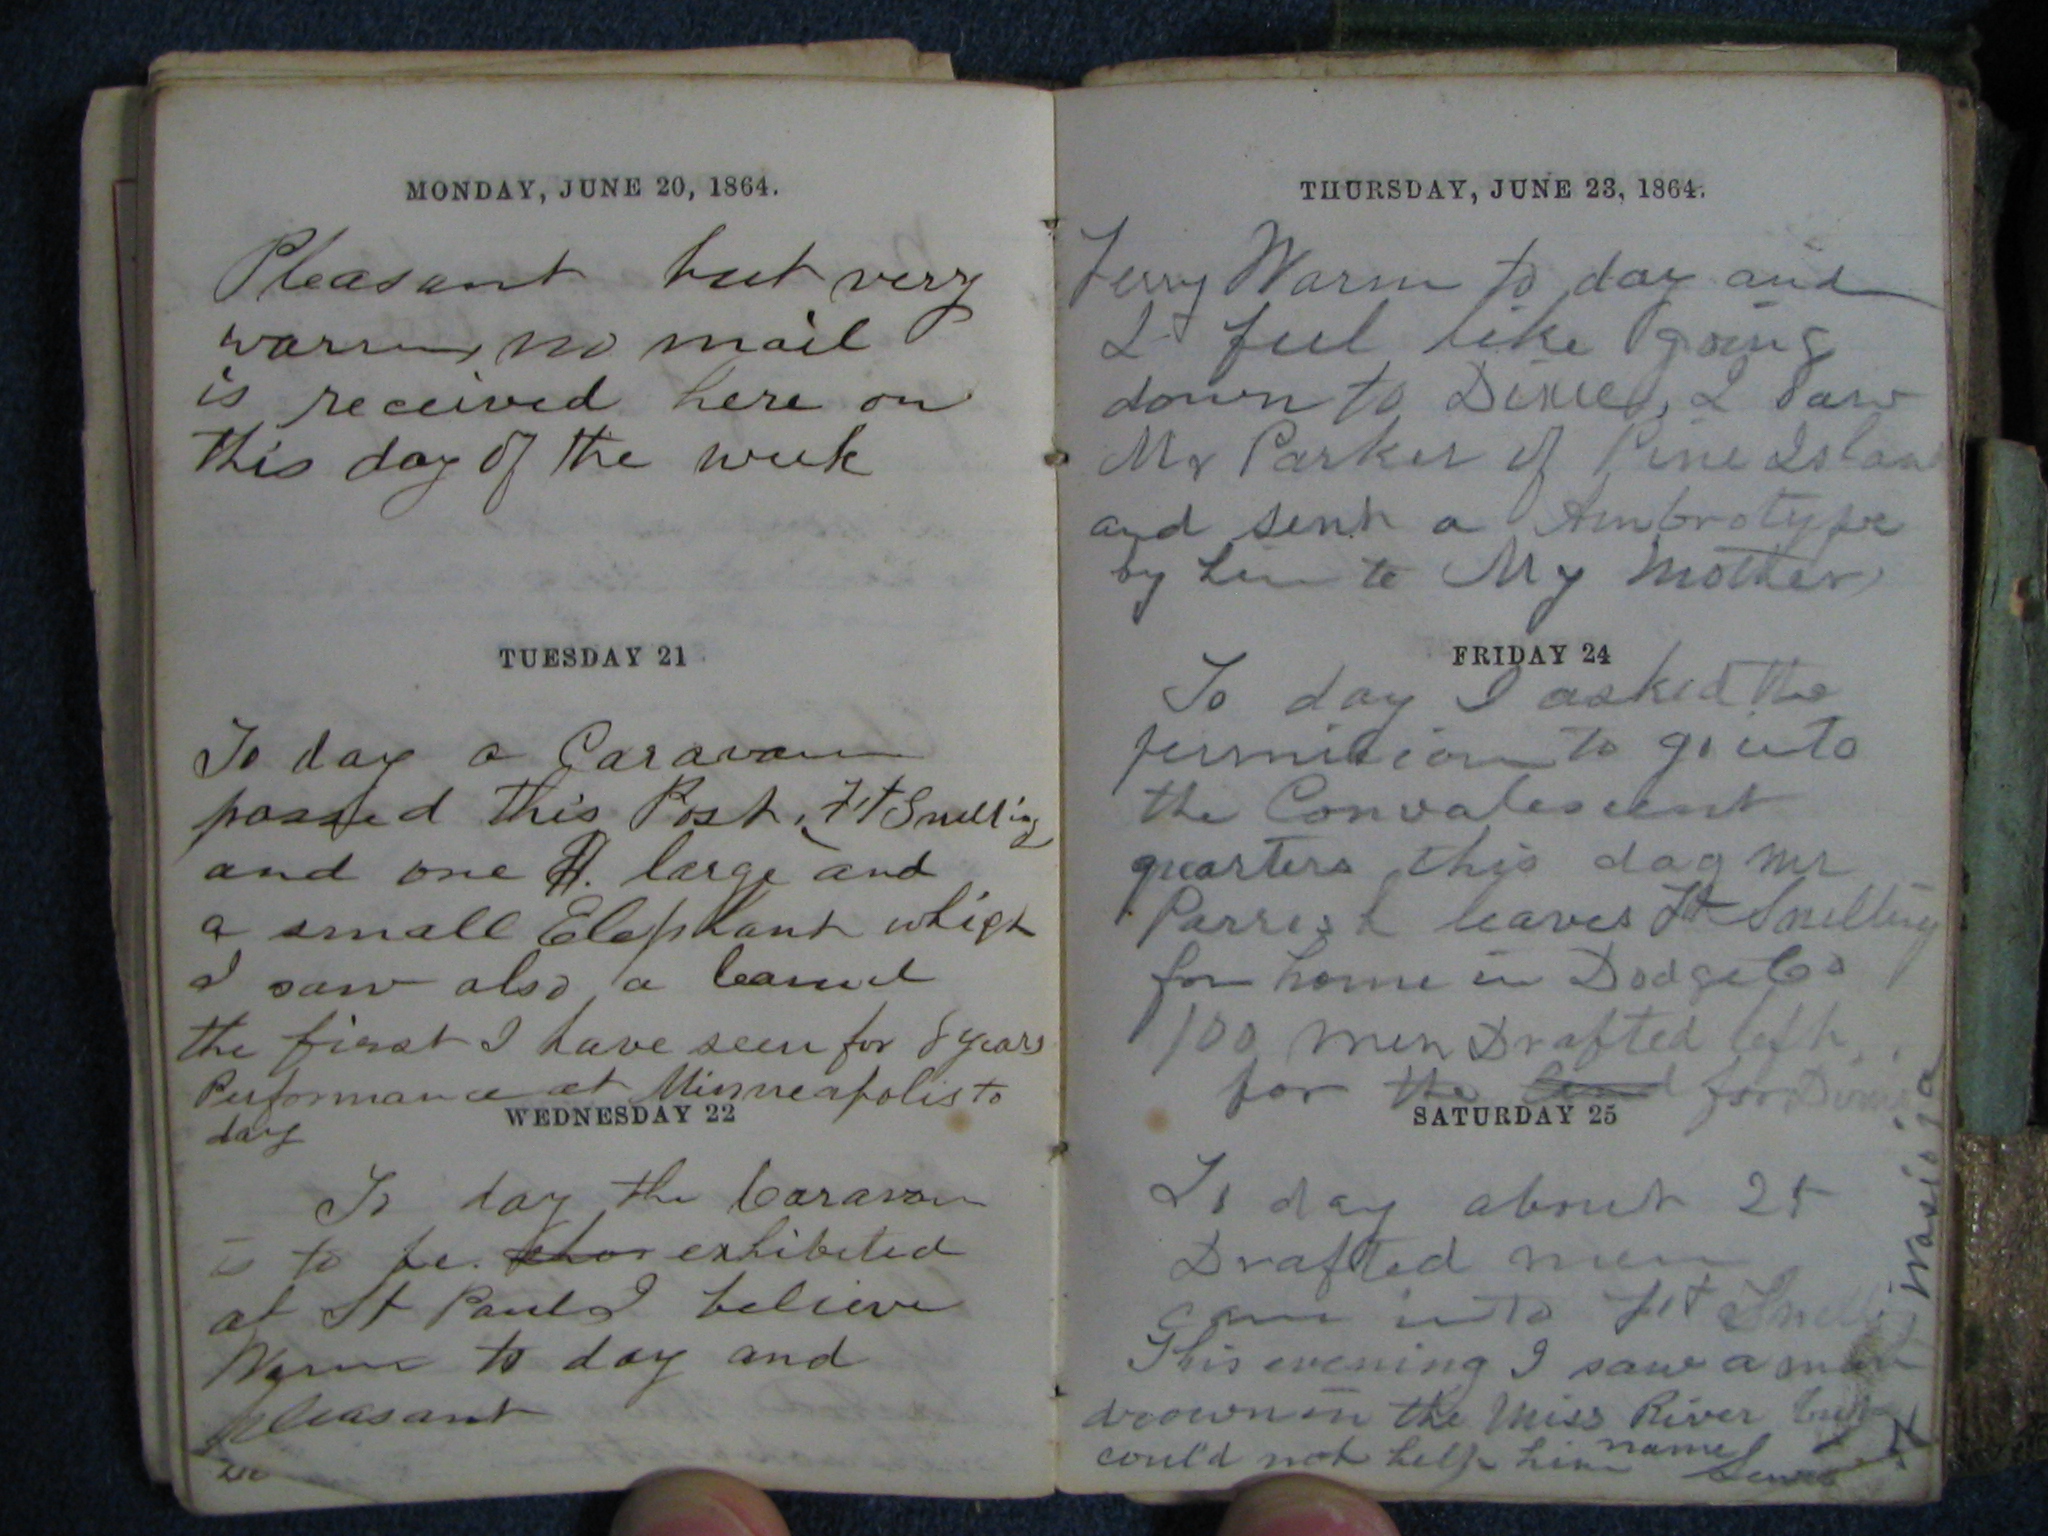 MONDAY, JUNE 20, 1864.
Pleasant but very
warm, no mail
is received here on
this day of the week
TUESDAY 21
To day a Caravan
passed this Post, Ft Snelling
and one large and
a small Elephant which
I saw also a Camel
the first I have seen for 8 years
Performance at Minneapolis to
day
WEDNESDAY 22
To day the Caravan
is to be exhibited
at St Paul I believe
Warm to day and
pleasant
THURSDAY, JUNE 23, 1864.
Verry Warm to day and
I feel like going
down to Dixie, I saw
Mr Parker of Pine Island
and sent a Ambrotype
by him to My Mother
FRIDAY 24
To day I asked the
permision to go into
the Convalescent
quarters this day Mr
Parrish leaves Ft Snelling
for home in Dodge Co
100 men Drafted left
for the for Dixie
SATURDAY 25
To day about 25
Drafted men
came into Ft Snelling
This evening I saw a man
drown in the Miss River but
could not help him name